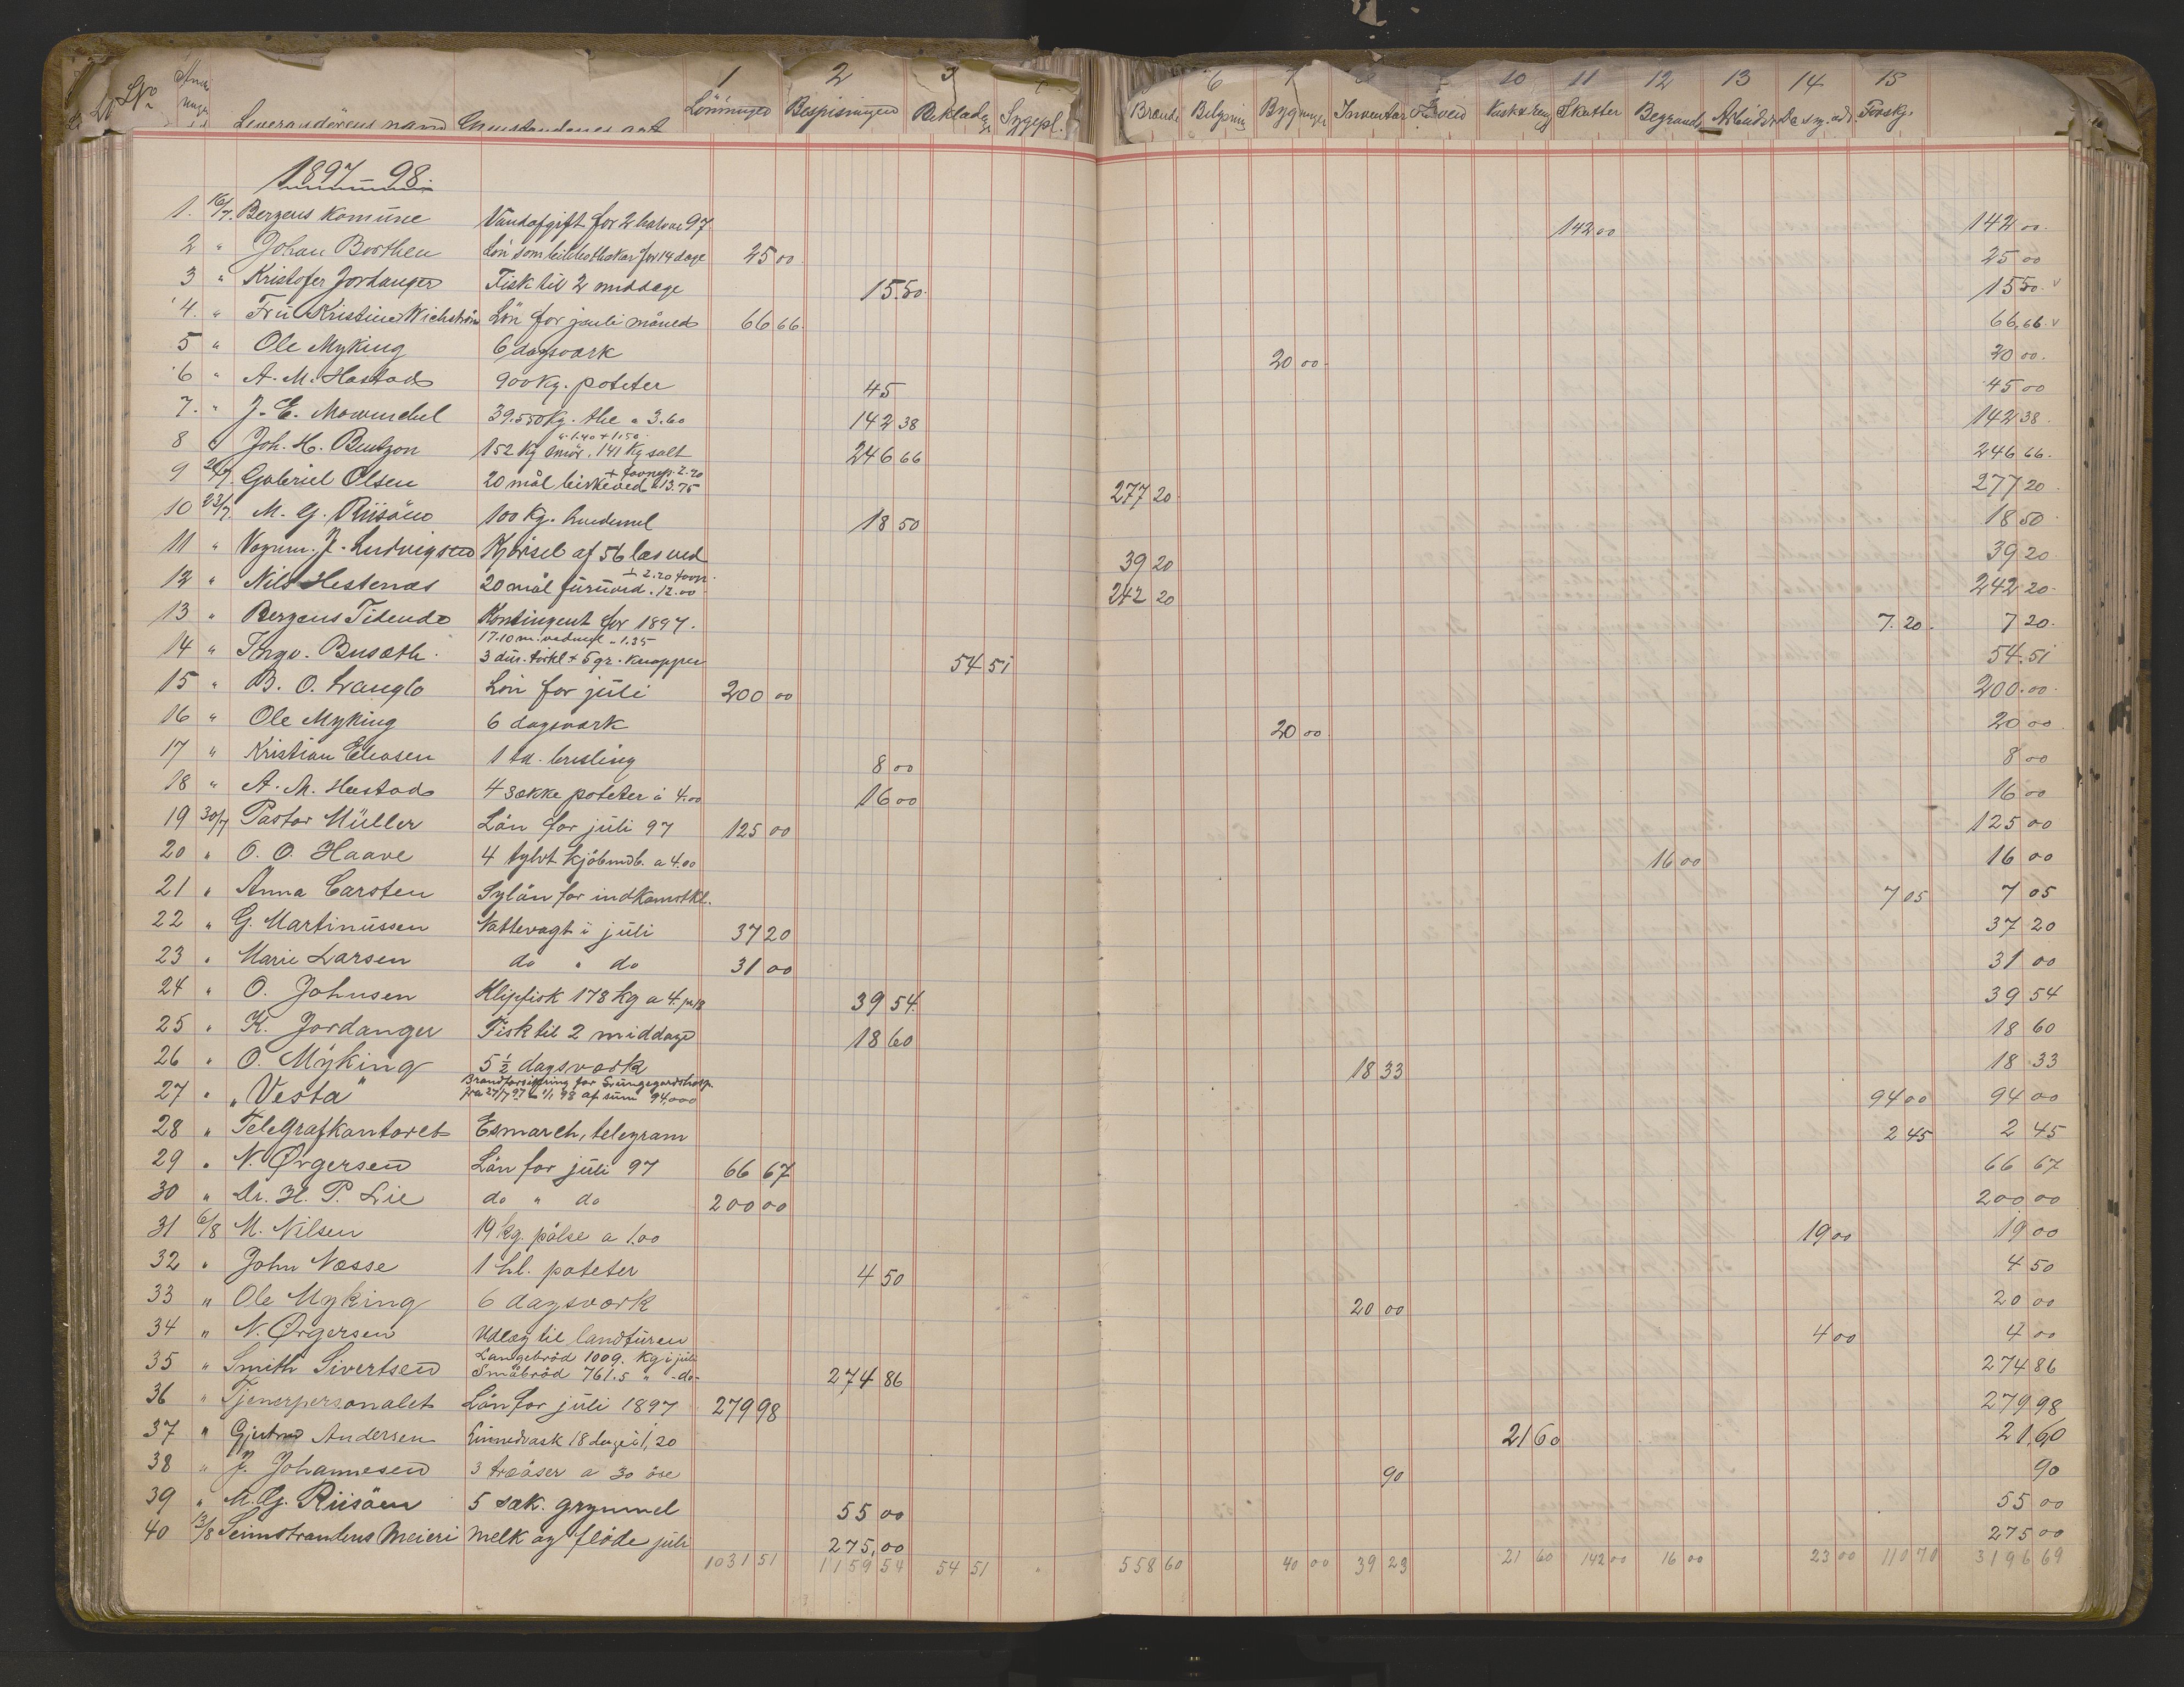 No 1 2 3 6 7 10 11 12 13 14 15
Leverandörens navn Lönninger Bespisningen Beklædn Sygepl. Brænde Belysning Bygninger Inventar Skatter Begravels
1897–98.
1. 16/7. Bergens Komune Vandafgift for 2 halvaar 97 142 00 142 00
2 " Johan Borthen Lön som bibliothekar for 14 dage 25 00 25 00
3 " Kristofer Jordanger Fisk til 2 middage 15 50 15 50
4. " Fru Kristine Wichström Lön for juli måned 66 66 66,66
5 " Ole Myking 6 dagsværk 20 00 20 00
6 " A. M. Hastad 900 Kg. poteter 45 45 00
7. " J. E. Mowinckel 39.550 Kg. the a 3.60 142 38 142 38
8 " Joh. H. Bentzon 152 Kg smör a 1.40 + 1.50 . 141 Kg salt 246 66 246 66
9 Gabriel Olsen 20 mål birkeved a 13.75 + favnep. 2.20 277 20 277 20
10 23/7. M. G. Riisöen 100 Kg. hvedemel 18 50 18 50
11 " Vognm. J. Ludvigsen Kjörsel af 56 læs ved 39 20 39 20
12 " Nils Hestenæs 20 mål furuved . 12.00 + 2.20 favnp. 242 20 242 20
13 " Bergens Tidende Kontingent for 1897. 7.20 7 20
14 " Ingv. Busæth. 17.10 m. vadmel - 1.35
3 dus. törkl + 5 gr. Knapper 54 51 54.51
15 " B. O. Langlo Lön for juli 200 00 200.00
16 " Ole Myking 6 dagsværk 20 00 20 00
17 " Kristian Eliasen 1 td. brisling 8 00 8 00
18 " A. M. Hastad 4 sække poteter a 4.00 16 00 16 00
19 30/7 Pastor Müller Lön for juli 97 125 00 125 00
20 " O. O. Haave 4 tylvt kjöbmdb. a 4.00 16 00 16 00
21 " Anna Carsten Sylön for indkomstkl. 7 05 7 05
22 " G. Martinussen Nattevagt i juli 37 20 37 20
23 " Marie Larsen do " do 31 00 31 00
24 " O. Johnsen Klipfisk 178 kg a 4. pr 18 39 54. 39 54
25 " K. Jordanger Fisk til 2 middage 18 60 18 60
26 " O. Myking 5 1/2 dagsværk 18 33 18 33
27 " "Vesta" Brandforsikring for Lungegardshosp.
fra 27/7 97 to 1/1 98 af sum 94,000 94 00 94 00
28 " Telegrafkantoret Esmarch, telegram 2 45 2 45
29 " N. Ørgersen Lön for juli 97 66 67 66 67
30 " Dr. H. P. Lie do " do 200 00 200 00
31 6/8 M. Nilsen 19 kg. pölse a 1.00 19 00 19 00
32 " John Næsse 1 hl. poteter 4 50 4 50
33 " Ole Myking 6 dagsværk 20 00 20 00
34 " N. Ørgersen Udlæg til landturen 4 00 4 00
35 " Smith Sivertsen Langebröd 1009. Kg i juli
Småbröd 761.5 " -do- 274 86 274 86
36 " Tjenerpersonalet Lön for juli 1897 279 98 279 98
37 " Gjertrud Andersen Linnedvask 18 dage à 1,20 21 60 21,60
38 " J. Johannesen 3 træåser a 30 öre 90 90
39 " M. G. Riisöen 5 sæk. grynmel 55 00 55 00
40 13/8 Seimstrandens Meieri melk og flöde juli 275,00 275 00
1031 51 1159 54 54 51 " 558 60 40 00 39 23 21 60 142 00 16 00 23 00 110 70 3196 69